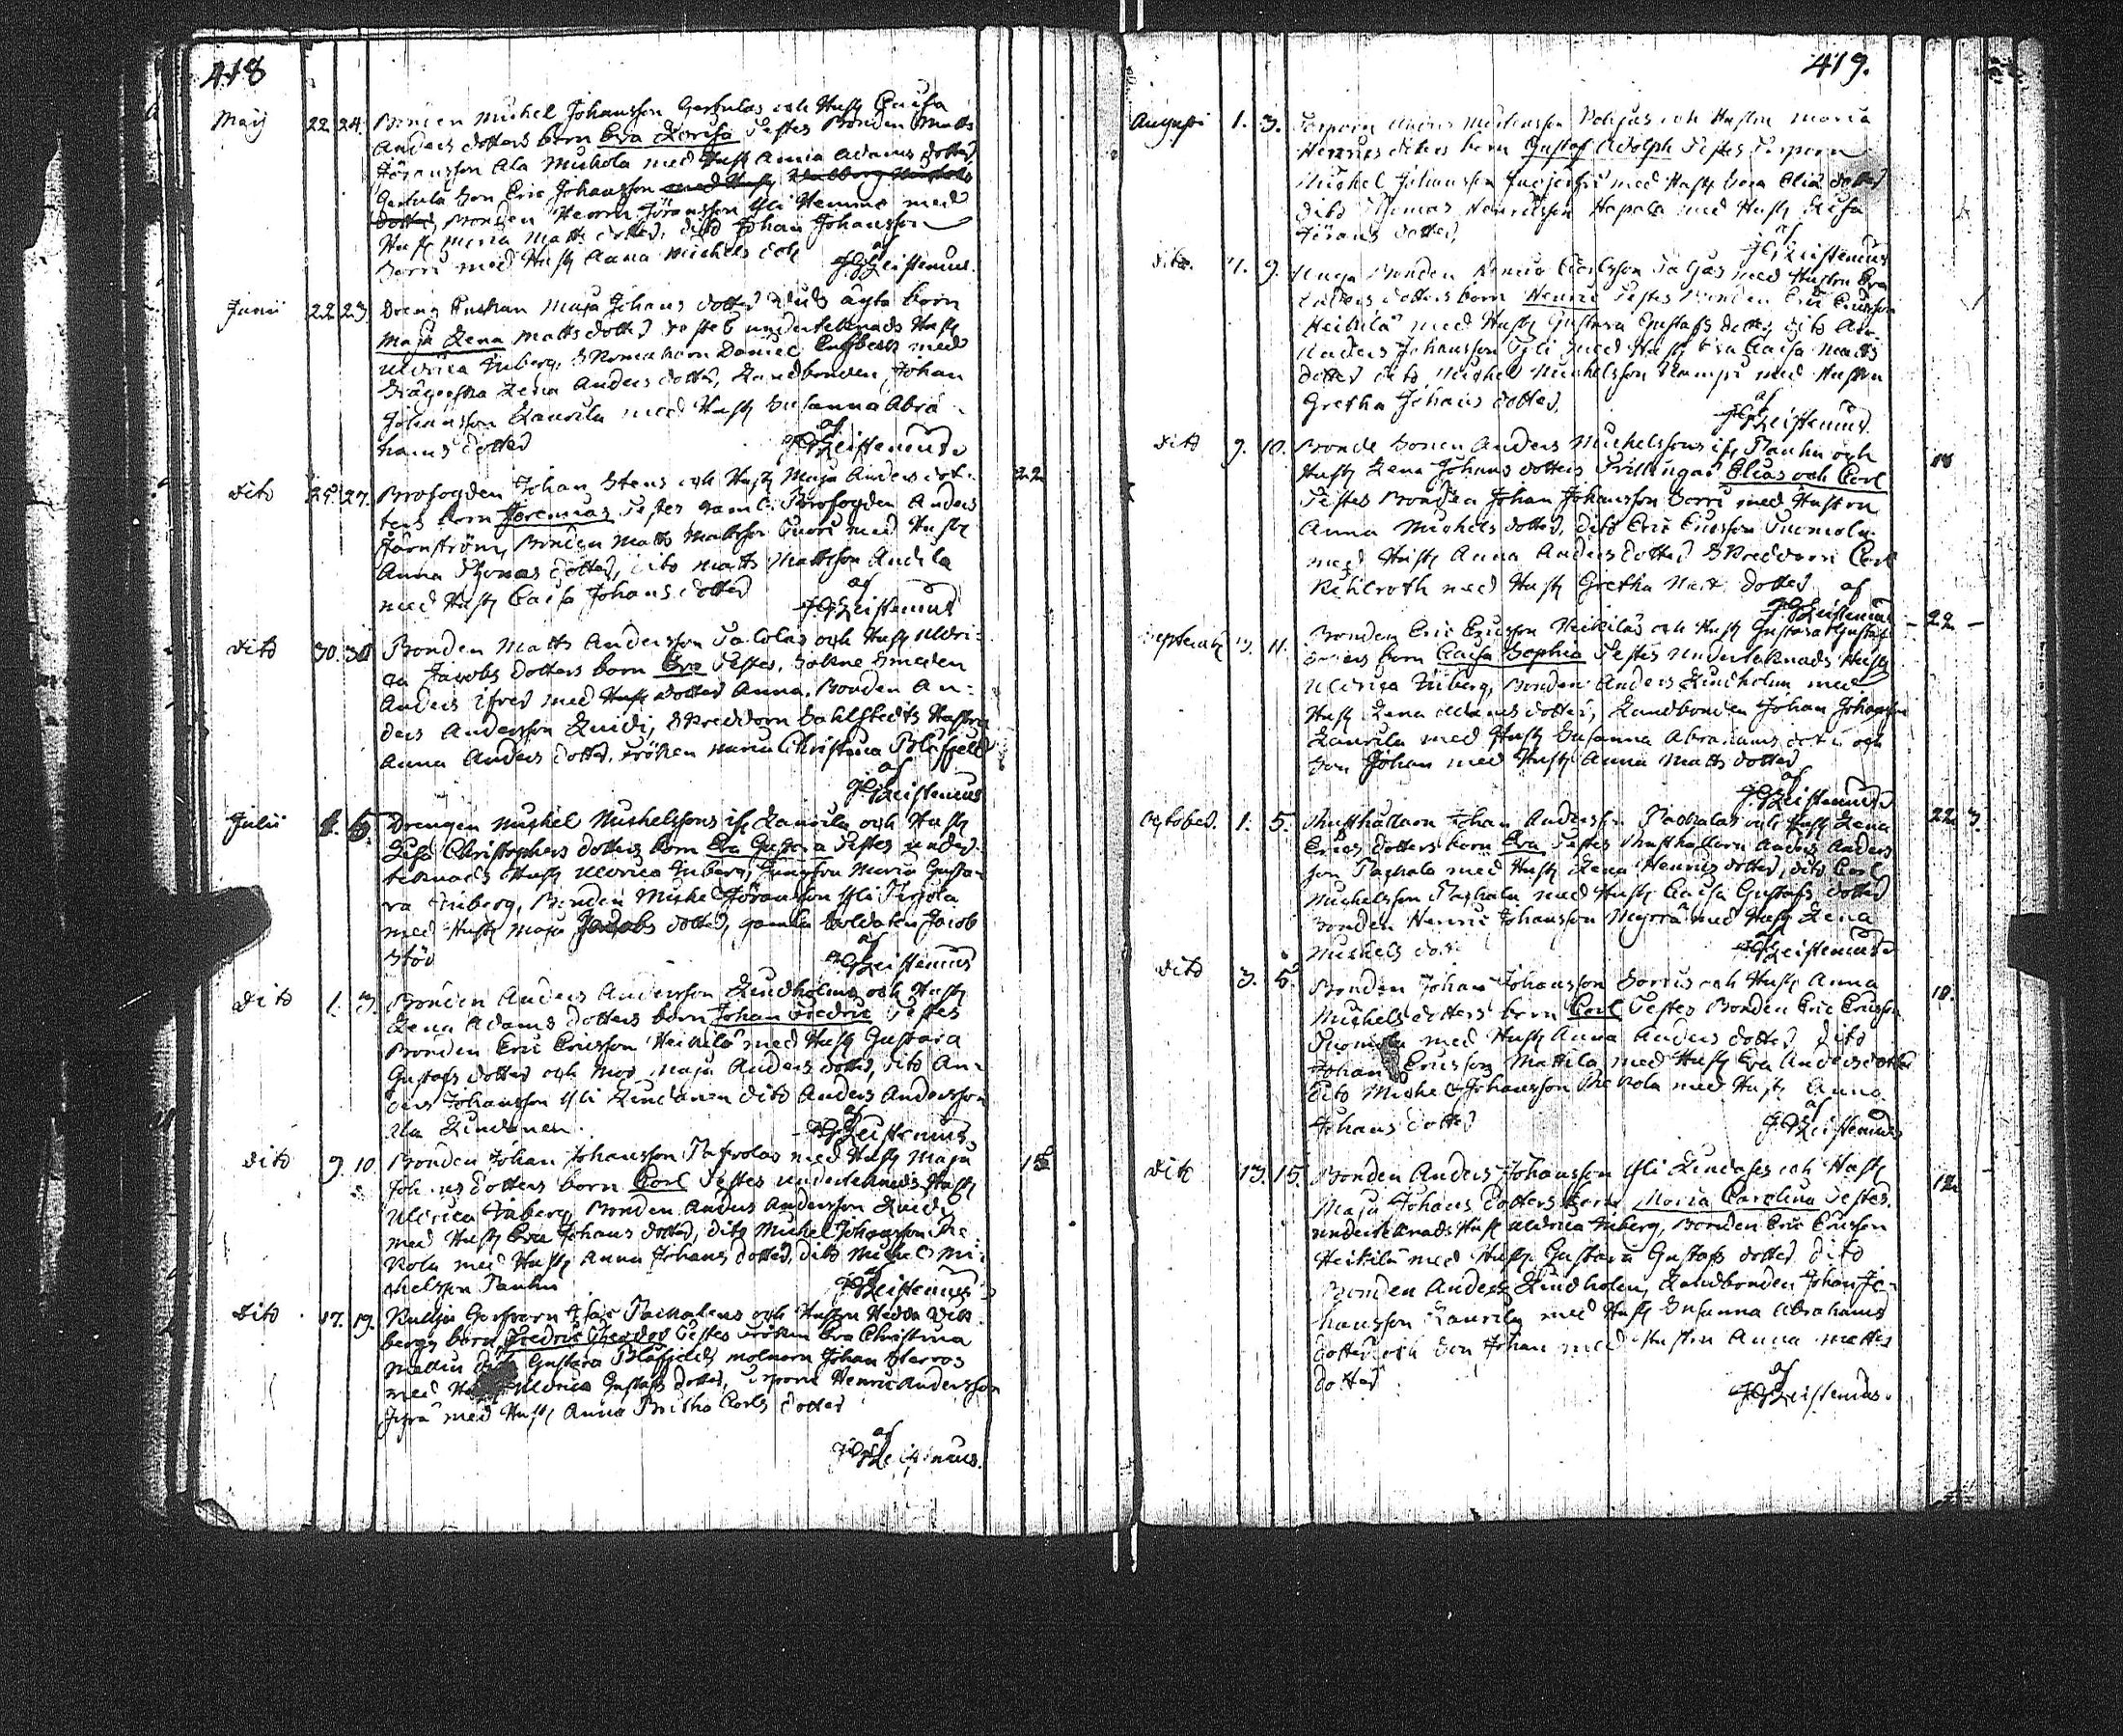 418
Maij 22. 24. Bonden Michel Johansson Gerkulas och Hust Caisa
Anders dotters born Eva Lovisa Testes Bonden Matts
Jöransson Ala Mickola med Hust Anna Adams dotter,
Gerkula Son Eric Johansson med Hust
dotter, Bonden Henric Jöransson Yli Hemmo med
Hust Maria Matts dotter, dito Johan Johansson
Sorri med Hust Anna Michels dott af
JGZeistenius.
Junii 22 23. Dreng Enckan Maja Johans dotters äyta born
Maja Lena Matts dotter Testes undertecknads Hust
Ulrica Inberg, Skomakarn Daniel med
Lena Anders dotter, Landbonden Johan
Johansson Laurila med Hust Susanna Abra
hams dotter af JGZeistenius
Dito 25. 27. Brofogden Johan Stens och Hust Maja Anders dot- 22
ters born Jeremias Testes gaml. Brofogden Anders
Stjernström, Bonden Matts Mattsson Cuori med Hust
Anna Thomas dotter, dito Matts Mattsson Andila
med Hust Caisa Johans dotter af
JGZeistenius
Dito 30. 30 Bonden Matts Andersson Talolas och Hust Ulri-
ca Jacobs dotters born Eva Testes, Sokne Smeden
Anders med Hust dotter Anna, Bonden An-
ders Andersson Luidi, Skreddarn Sahlstedts Hustru
Anna Anders dotter, Fröken Maria Christina Blåfield
af
JGZeistenius
Julii 1. 5. Drengen Michel Michelssons ifr Laurila och Hust
Lisa Christophers dotters born Eva Gustava Testes under-
tecknads Hust Ulrica Inberg, Jungfru Maria Gusta-
va Inberg, Bonden Michel Jöransson Yli
med Hust Maja Jacobs dotter, gamla Soldaten Jacob
Stöd af JGZeistenius
Dito 1. 3. Bonden Anders Andersson Lindholms och Hust
Lena Adams dotters born Johan Fredric Testes
Bonden Eric Ericsson Heikilä med Hust Gustava
Gustafs dotter och Mor Maja Anders dotter, dito An-
ders Johansson Yli Lindanen dito Anders Andersson
Ala Lindanen. af JGZeistenius
Dito 9. 10 Bonden Johan Johansson med Hust Maja 18
Johans dotters born Carl Testes undertecknads Hust
Ulrica Inberg, Bonden Anders Andersson Luidi
med Hust Eva Johans dotter, dito Michel Johansson Che-
kola med Hust Anna Johans dotter, dito Michel Mi-
chelsson Tanhu af JGZeistenius
Dito 17. 19. Isac Tackalens och Hustru Hedda Vidt
bergs born Fredric Theodor Testes Fröken Eva Christina
Gustava Blåfield, Molnarn Johan
med Hust Ulrica Gustafs dotter, Torparn Henric Andersson
Jyrä med Hust Anna Britha Carls dotter
af
JGZeistenius.
419.
Augusti 1. 3. Torparn Anders Michelsson och Hustru Maria
Henrics dotters born Gustaf Adolph Testes Torparn
Michel Johansson med Hust Sara Elia dotter
dito Thomas Henricsson Hapala med Hust Lisa
Jörans dotter, af
JGZeistenius
Dito. 7. 9. Unga Bonden Henric Carlsson Taljas med Hustru Eva
Anders dotters born Henric Testes Bonden Eric Ericsson
Heikilä med Hust Gustava Gustafs dotter, dito An-
Anders Johansson Yli med Hust Eva Caisa Matts
dotter dito Michel Michelsson Kamppi med Hustru
Gretha Johans dotter, af
JGZeistenius.
Dito 9. 10. Bonde Sonen Anders Michelssons ifr Tanhu och 18
Hust Lena Johans dotters Tvillingar Elias och Carl
Testes Bonden Johan Johansson Sorri med Hustru
Anna Michels dotter, dito Eric Ericsson Tuomola
med Hust Anna Anders dotter Skreddarn Carl
Kihlroth med Hust Gretha Matts dotter af
JGZeistenius
Septemb 9. 11. Bonden Eric Ericsson Heikiläs och Hust Gustava Gustaf - 22 -
dotters born Caisa Sophia Testes undertecknads Hust
Ulrica Inberg, Bonden Anders Lindholm med
Hust Lena Adams dotter, Landbonden Johan Johansson
Laurila med Hust Susanna Abrahams dotter och
Son Johan med Hust Anna Matts dotter
af
JGZeistenius
October. 1. 5. Rusthållarn Johan Andersson Packalas och Hust Lena 22 3.
Erics dotters born Eva Testes Rusthållarn Anders Anders
son Packala med Hust Lena Henrics dotter, dito Carl
Michelsson Packala med Hust Caisa Gustafs dotter
Bonden Henric Johansson Myrrä med Hust Lena
Michels dott: af JGZeistenius
Dito 3. 5. Bonden Johan Johansson Sorris och Hust Anna 18.
Michels dotters born Carl Testes Bonden Eric Ericsson
Tuomola med Hust Anna Anders dotter, dito
Johan Ericsson Mattila med Hust Eva Anders dotter
dito Michel Johansson Chekola med Hust Anna
Johans dotter af
JGZeistenius
Dito 13. 15. Bonden Anders Johansson Yli Lindases och Hust 12
Maja Johans dotters born Maria Carolina Testes.
undertecknads Hust Ulrica Inberg, Bonden Eric Ericsson
Heikilä med Hust Gustava Gustafs dotter, dito
Bonden Anders Lindholm, Landbonden Johan Jo-
hansson Laurila med Hust Susanna Abrahams
dotter och Son Johan med Hustru Anna Matts
dotter af
JGZeistenius.